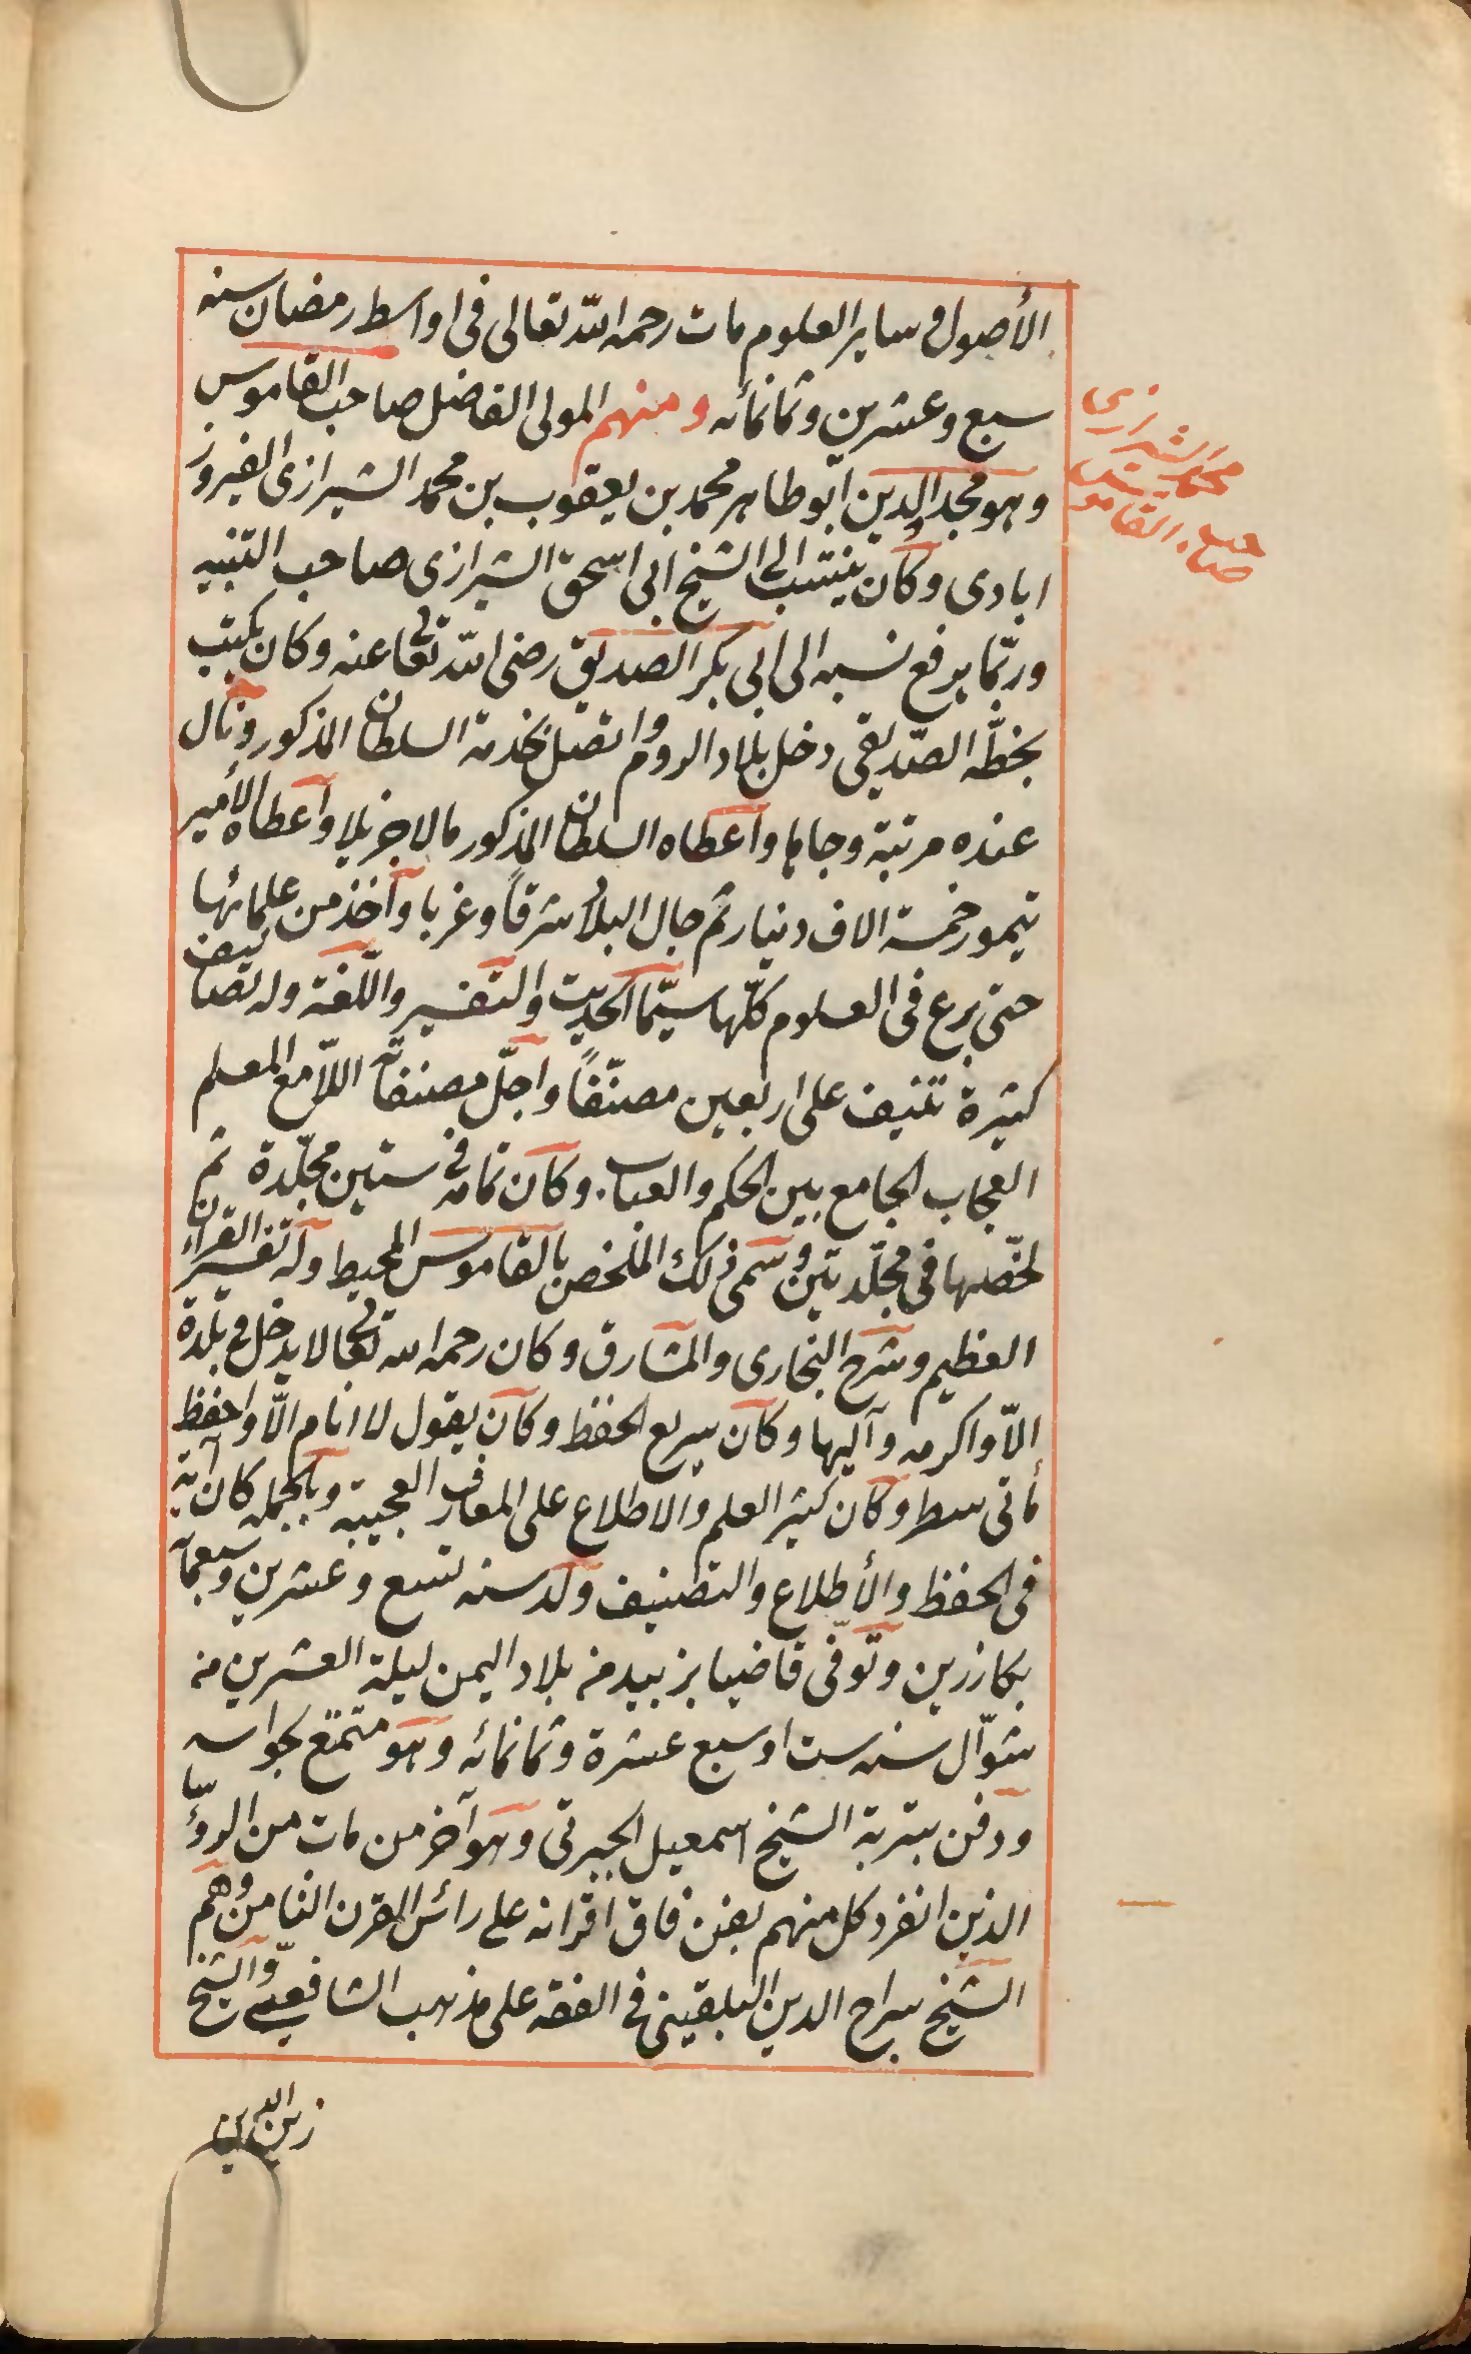 الأصول وساير العلوم مات رحمه الله تعالى فى اواسط رمضان سنه
سبع وعشرين وثمانمائه ومنهم المولى الفاضل صاحب القاموس
وهو مجد الدين ابو طاهر محمد بن يعقوب بن محمد الشيرازى الفيروز
ابادى وكان ينتسب الى الشيخ ابى اسحق الشيرازى صاحب التنبيه
وربّما يرفع نسبه الى ابى بكر الصديق رضى الله تعالى عنه وكان يكتب
بخطّه الصدّيقى دخل بلاد الروم واتصل بخدمة السلطان المذكور ونال
عنده مرتبة وجاها واعطاه السلطان المذكور مالا جزيلا واعطاه الأمير
تيمور خمسة الاف دينار ثم جال البلاد شرقاً وغربا واخذ من علمائها
حتى برع فى العلوم كلّها سيّما الحديث والتفسير واللّغة وله تصانيف
كثيرة تنيف على اربعين مصنّفاً واجلّ مصنفاته اللّامع المعلم
العجاب الجامع بين المحكم والعباب. وكان تمامه فى ستين مجلّدة ثم
لخّصها فى مجلّدتين وسمى ذلك الملخص بالقاموس المحيط وله تفسير القران
العظيم وشرح البخارى والمشارق وكان رحمه الله تعالى لا يدخل فى بلدة
الاّ واكرمه وآليها وكان سريع الحفظ وكان يقول لا انام الاّ واحفظ
مأتى سطر وكان كثير العلم والاطلاع على المعارف العجيبة وبالجمله كان آية
فى الحفظ والأطلاع والتصنيف ولد سنه تسع وعشرين وسبعمأ
بكازرين وتوفّى قاضيا بزبيد من بلاد اليمن ليلة العشرين من
شوّال سنه ست او سبع عشرة وثمانمائه وهو متمتع بحواسه
ودفن بتربة الشيخ اسمعيل الجبرتى وهو آخر من مات من الروّسا
الذين انفرد كل منهم بفن فاق اقرانه على رائس القرن الثامن وهم
الشيخ سراج الدين البلقينى فى الفقه على مذهب الشافعى والشيخ
زين الدين
محمد الشيرازى
صاحب القاموس